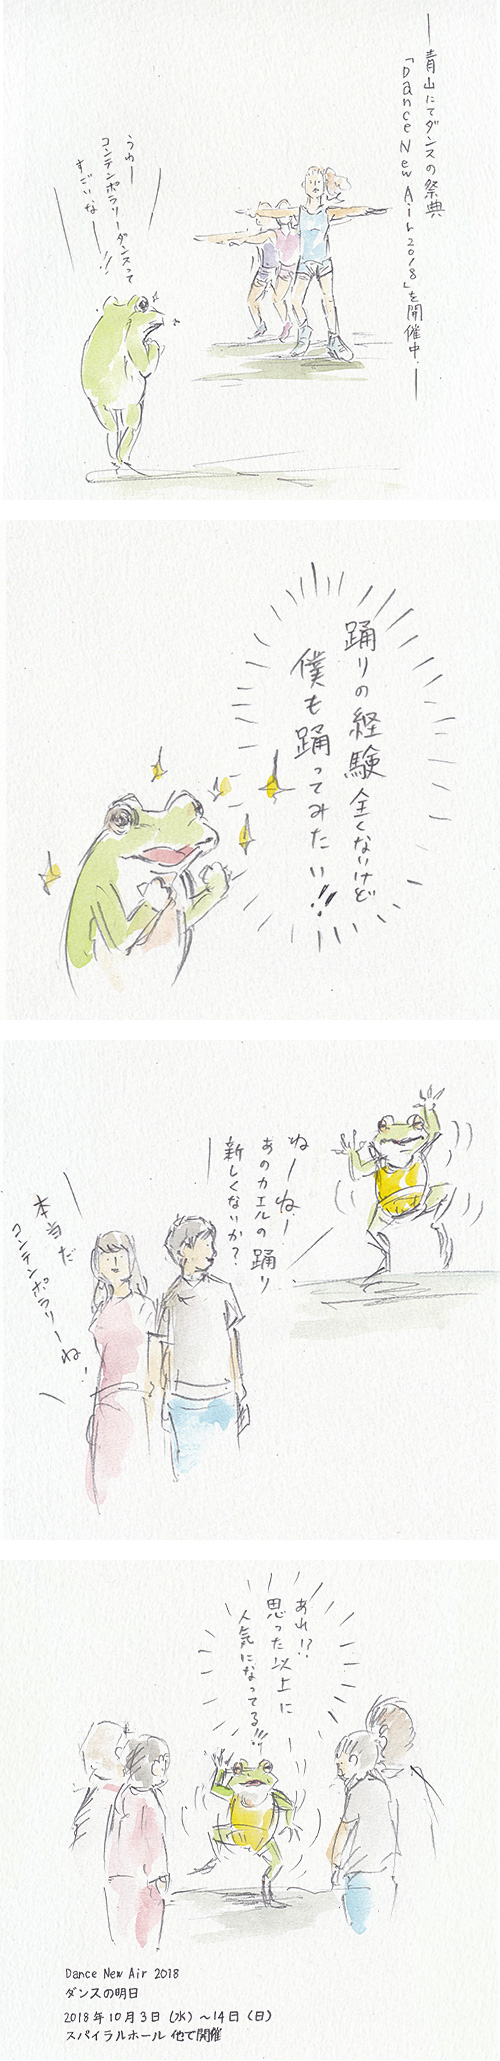 青山にてダンスの祭典
「Dance New Air 2018」を開催中
うわー
コンテンポラリーダンスって
すごいなー!!
踊りの経験全くないけど
僕も踊ってみたい!!
ねーねー!
あのカエルの踊り
新しくないか?
本当だ
コンテンポラリーね!
あれ!?
思った以上に
人気になってる!!!
Dance New Air 2018
ダンスの明日
2018年10月3日(水)~14日(日)
スパイラルホール 他で開催